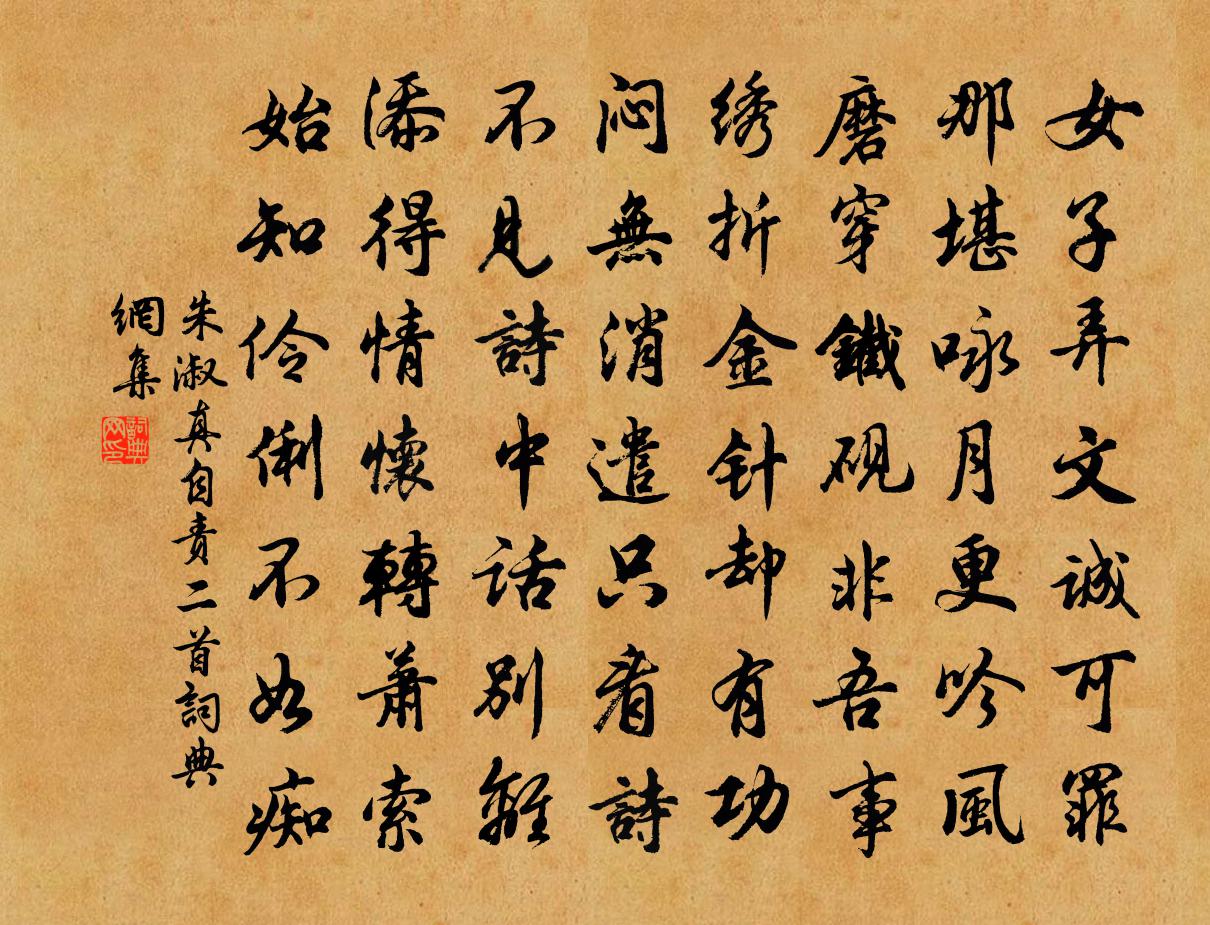 女子弄文誠可罪
那堪咏月更吟風
磨穿鐵砚非吾事
绣折金针却有功
闷無消遣只看詩
不見詩中話別離
添得情懷轉蕭索
始知伶俐不如痴
朱淑真自责二首詞典
網集
詞典网印